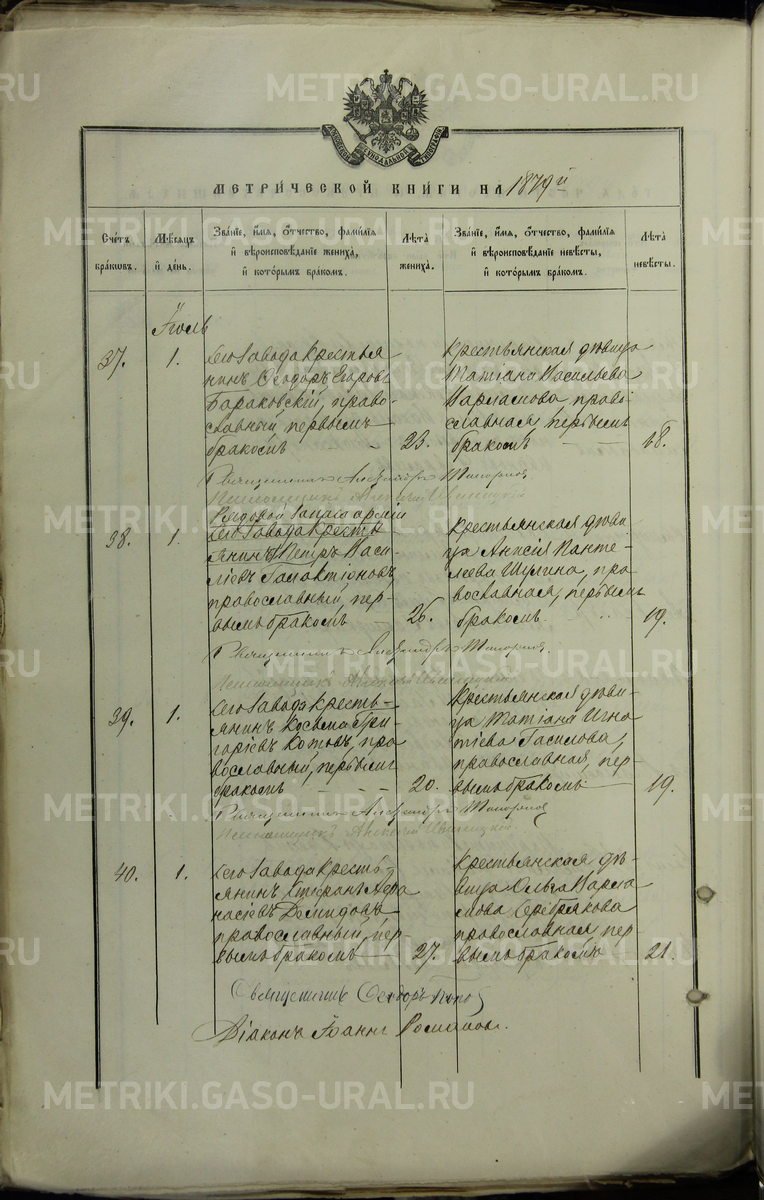 МОСКОВСКОЙ СѴНОДАЛЬНОЙ ТИПОГРАФІИ
МЕТРИ́ЧЕСКОЙ КНИ́ГИ НА 1879й
Счетъ браковъ.
Мѣсяцъ и день.
Званіе, имя, отчество, фамилія и вѣроисповѣданіе жениха, и которымъ бракомъ.
Лѣта жениха.
Званіе, имя, отчество, фамилія и вѣроисповѣданіе невѣсты, и которымъ бракомъ.
Лѣта невѣсты.
Іюль
37.
1.
Сего Завода крестья
нинъ Ѳеодоръ Егоровъ
Бараковскій, право-
славный первымъ
бракомъ
23.
Крестьянская дѣвица
Татіана Васильева
Варламова, право
славная, первымъ
бракомъ
18.
Священникъ Александръ Топорковъ
Псаломщикъ Алексѣй
Рядовой Запаса арміи
38.
1.
Сего Завода кресть
янинъ Петръ Васи-
ліевъ Галактіоновъ,
православный, пер-
вымъ бракомъ
26.
Крестьянская дѣви-
ца Анисія Панте-
лѣева Шулина, пра
вославная, первымъ
бракомъ.
19.
Священникъ Александръ Топорковъ
Псаломщикъ Алексѣй
39.
1.
Сего Завода кресть-
янинъ Косьма Гри-
горіевъ Котовъ, пра
вославный, первымъ
бракомъ
20.
Крестьянская дѣви-
ца Татіана Игна
тіева Гасилова,
православная, пер-
вымъ бракомъ
19.
Священникъ Александръ Топорковъ
Псаломщикъ Алексѣй
40.
1.
Сего Завода кресть
янинъ Стефанъ Аѳа
насіевъ Демидовъ
православный, пер-
вымъ бракомъ
27.
Крестьянская дѣ-
вица Ольга Варла
мова Серебрякова
православная пер
вымъ бракомъ
21.
Священникъ Ѳеодоръ Попо
Діаконъ Іоаннъ Романов.
METRIKI.GASO-URAL.RU